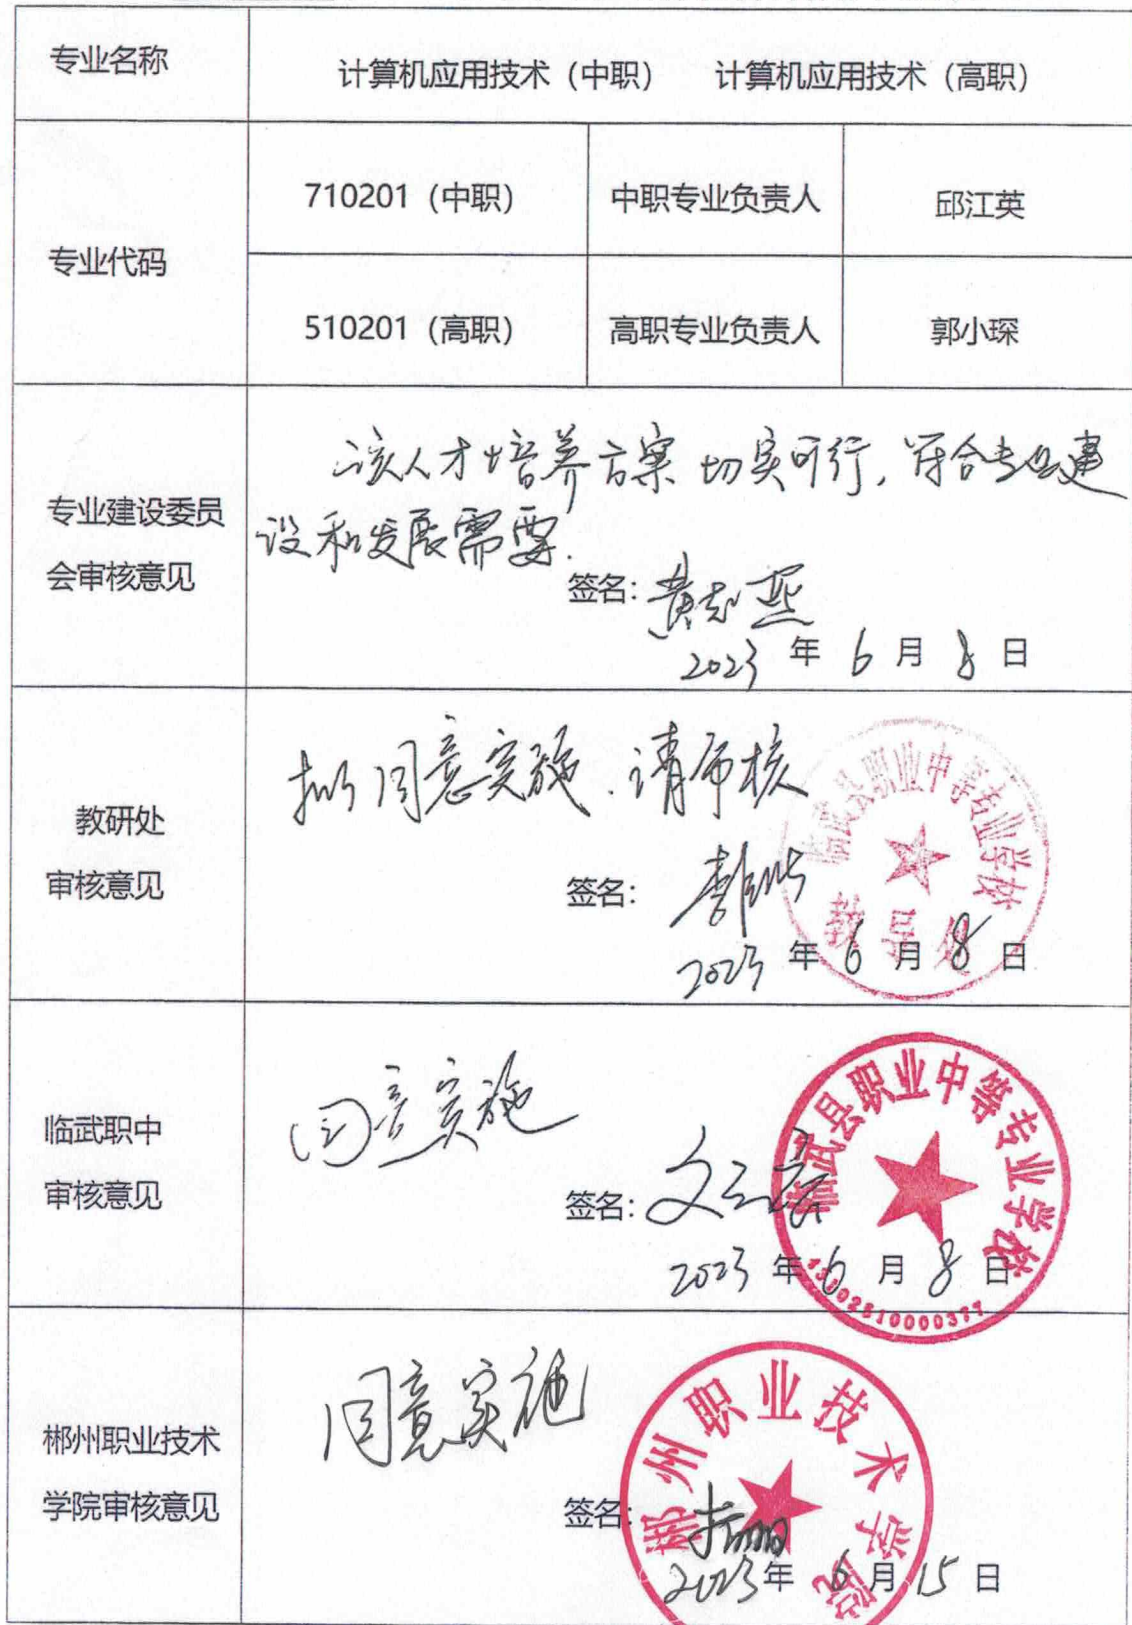 专业名称
计算机应用技术（中职） 计算机应用技术（高职）
专业代码
710201（中职） 中职专业负责人 邱江英
510201（高职） 高职专业负责人 郭小琛
专业建设委员
会审核意见
该人才培养方案切实可行，符合专业建
设和发展需要.
签名：
2023 年 6 月 8 日
教研处
审核意见
拟同意实施.请审核
签名：
2023 年 6 月 8 日
临武县职业中等专业学校
临武职中
审核意见
同意实施
签名：
2023 年 6 月 8 日
临武县职业中等专业学校
郴州职业技术
学院审核意见
同意实施
签名：
2023 年 6 月 15 日
郴州职业技术学院